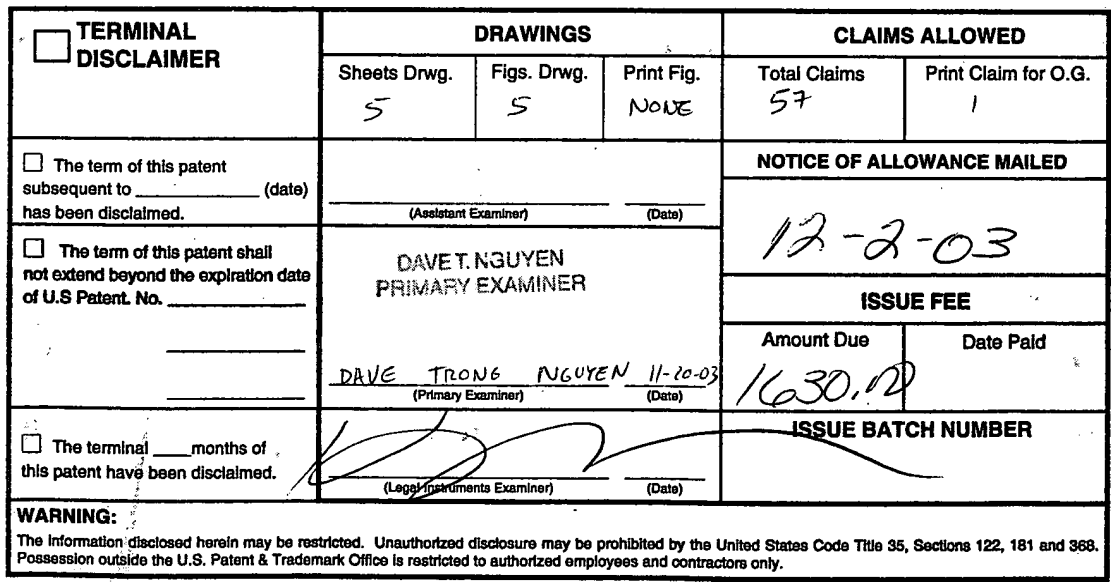 TERMINAL
DISCLAIMER
DRAWINGS
CLAIMS ALLOWED
Sheets Drwg.
Figs. Drwg.
Print Fig.
Total Claims
Print Claim for O.G.
5
5
NONE
57
1
The term of this patent
subsequent to ____________ (date)
has been disclaimed.
(Assistant Examiner)
(Date)
NOTICE OF ALLOWANCE MAILED
12-2-03
The term of this patent shall
not extend beyond the expiration date
of U.S Patent. No. ____________
DAVE T. NGUYEN
PRIMARY EXAMINER
DAVE TRONG NGUYEN 11-20-03
(Primary Examiner)
(Date)
ISSUE FEE
Amount Due
Date Paid
1630.00
ISSUE BATCH NUMBER
The terminal ____months of
this patent have been disclaimed.
(Legal Instruments Examiner)
(Date)
WARNING:
The information disclosed herein may be restricted. Unauthorized disclosure may be prohibited by the United States Code Title 35, Sections 122, 181 and 368.
Possession outside the U.S. Patent & Trademark Office is restricted to authorized employees and contractors only.